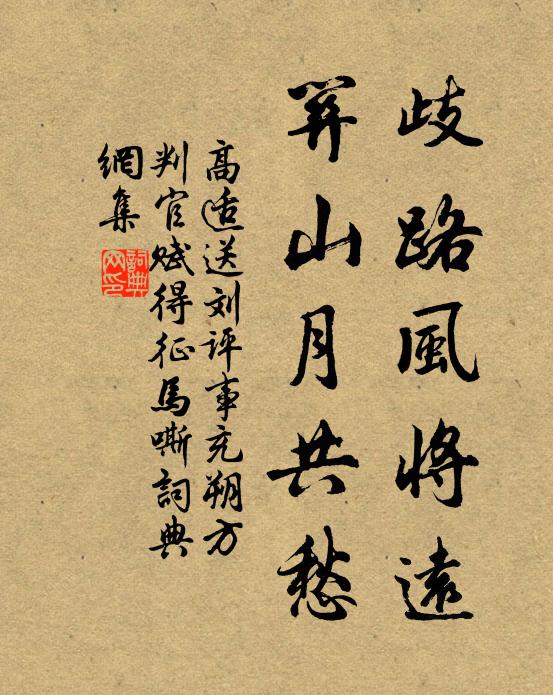 歧路風將遠
關山月共愁
高适送刘评事充朔方
判官赋得征馬嘶詞典
網集
詞典
网印